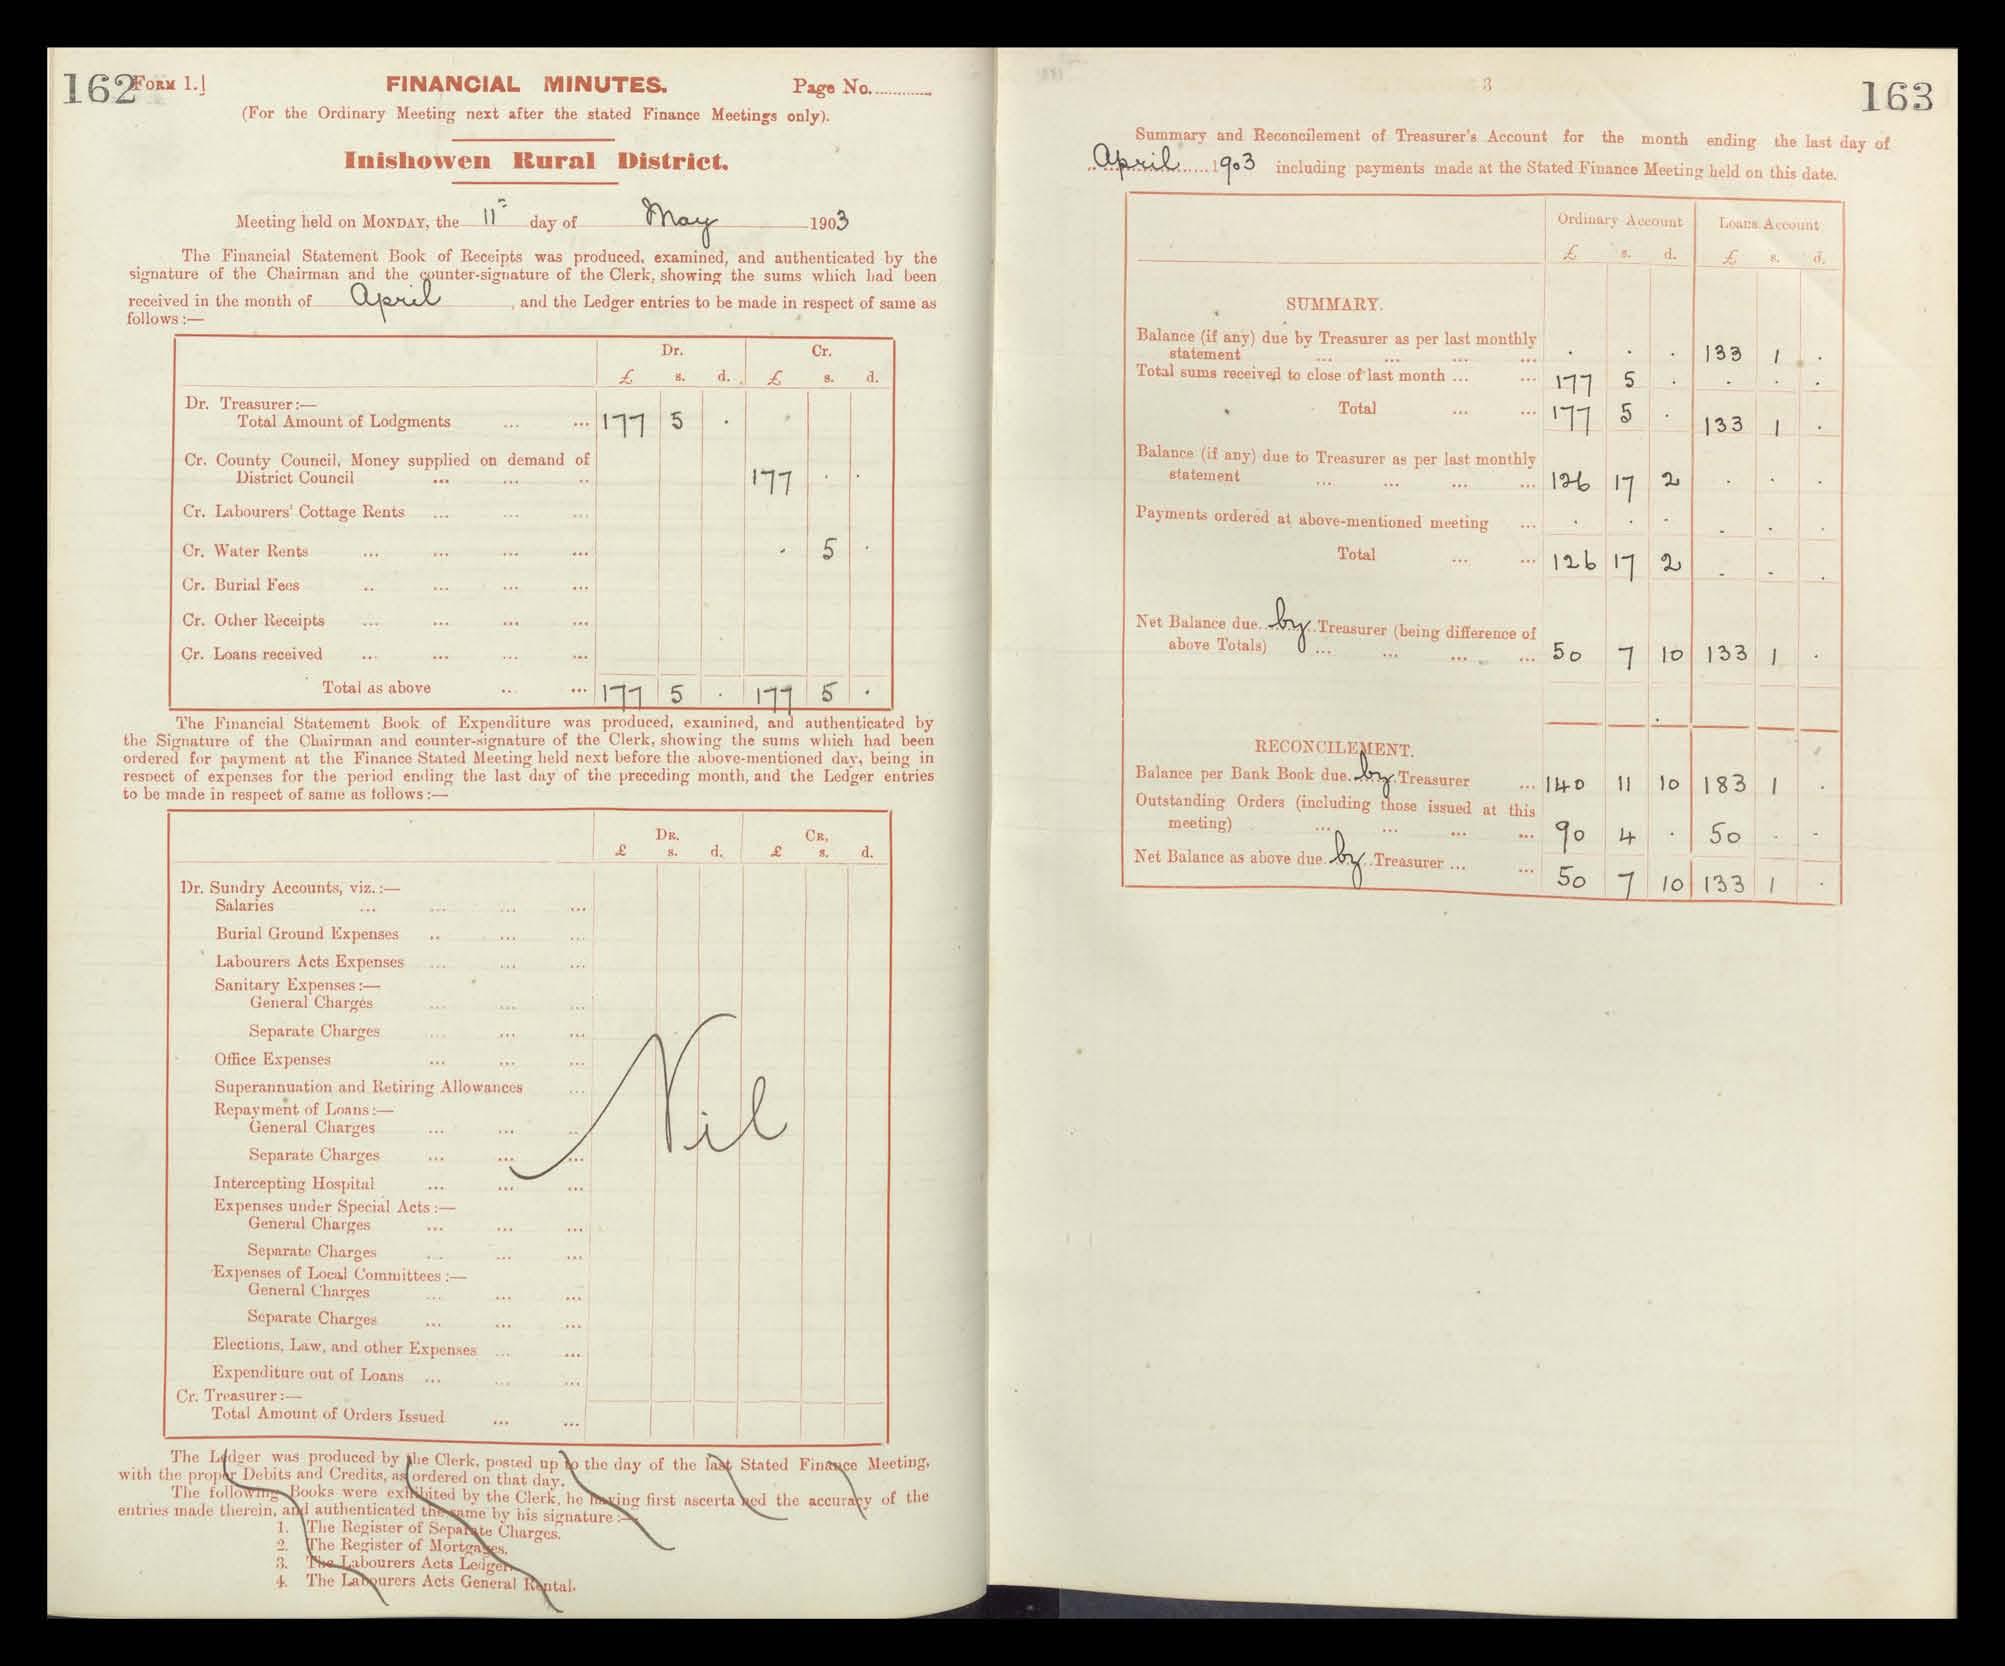 162
Form 1.]
FINANCIAL MINUTES.
Page No.
(For the Ordinary Meeting next after the stated Finance Meetings only).
Inishowen Rural District.
Meeting held on MONDAY, the 11th day of May 1903
The Financial Statement Book of Receipts was produced, examined, and authenticated by the
signature of the Chairman and the counter-signature of the Clerk, showing the sums which had been
received in the month of April, and the Ledger entries to be made in respect of same as
follows :—
Dr. Cr.
£ s. d. £ s. d.
Dr. Treasurer:—
Total Amount of Lodgments ... ... 177 5 .
Cr. County Council, Money supplied on demand of
District Council ... ... .. 177 . .
Cr. Labourers' Cottage Rents ... ... ...
Cr. Water Rents ... ... ... ... . 5 .
Cr. Burial Fees .. ... ... ...
Cr. Other Receipts ... ... ... ...
Cr. Loans received ... ... ... ...
Total as above ... ... 177 5 . 177 5 .
The Financial Statement Book of Expenditure was produced, examined, and authenticated by
the Signature of the Chairman and counter-signature of the Clerk, showing the sums which had been
ordered for payment at the Finance Stated Meeting held next before the above-mentioned day, being in
respect of expenses for the period ending the last day of the preceding month, and the Ledger entries
to be made in respect of same as follows :—
DR. CR.
£ s. d. £ s. d.
Dr. Sundry Accounts, viz. :—
Salaries ... ... ... ...
Burial Ground Expenses .. ... ...
Labourers Acts Expenses ... ... ...
Sanitary Expenses :—
General Charges ... ... ...
Separate Charges ... ... ...
Office Expenses ... ... ...
Superannuation and Retiring Allowances ...
Repayment of Loans :—
General Charges ... ... ..
Nil
Separate Charges ... ... ...
Intercepting Hospital ... ... ...
Expenses under Special Acts :—
General Charges ... ... ...
Separate Charges ... ... ...
Expenses of Local Committees :—
General Charges ... ... ...
Separate Charges ... ... ...
Elections, Law, and other Expenses ... ...
Expenditure out of Loans ... ... ...
Cr. Treasurer :—
Total Amount of Orders Issued ... ...
The Ledger was produced by the Clerk, posted up to the day of the last Stated Finance Meeting,
with the proper Debits and Credits, as ordered on that day.
The following Books were exhibited by the Clerk, he having first ascertained the accuracy of the
entries made therein, and authenticated the same by his signature :—
1. The Register of Separate Charges.
2. The Register of Mortgages.
3. The Labourers Acts Ledger.
4. The Labourers Acts General Rental.
3
163
Summary and Reconcilement of Treasurer's Account for the month ending the last day of
April 1903 including payments made at the Stated Finance Meeting held on this date.
Ordinary Account Loans Account
£ s. d. £ s. d.
SUMMARY.
Balance (if any) due by Treasurer as per last monthly
statement ... ... ... ... . . . 133 1 .
Total sums received to close of last month ... ... 177 5 . . . .
Total ... ... 177 5 . 133 1 .
Balance (if any) due to Treasurer as per last monthly
statement ... ... ... ... 126 17 2 . . .
Payments ordered at above-mentioned meeting ... . . . . . .
Total ... ... 126 17 2 . . .
Net Balance due by Treasurer (being difference of
above Totals) ... ... ... ... 50 7 10 133 1 .
RECONCILEMENT.
Balance per Bank Book due by Treasurer ... 140 11 10 183 1 .
Outstanding Orders (including those issued at this
meeting) ... ... ... ... 90 4 . 50 . .
Net Balance as above due by Treasurer ... ... 50 7 10 133 1 .